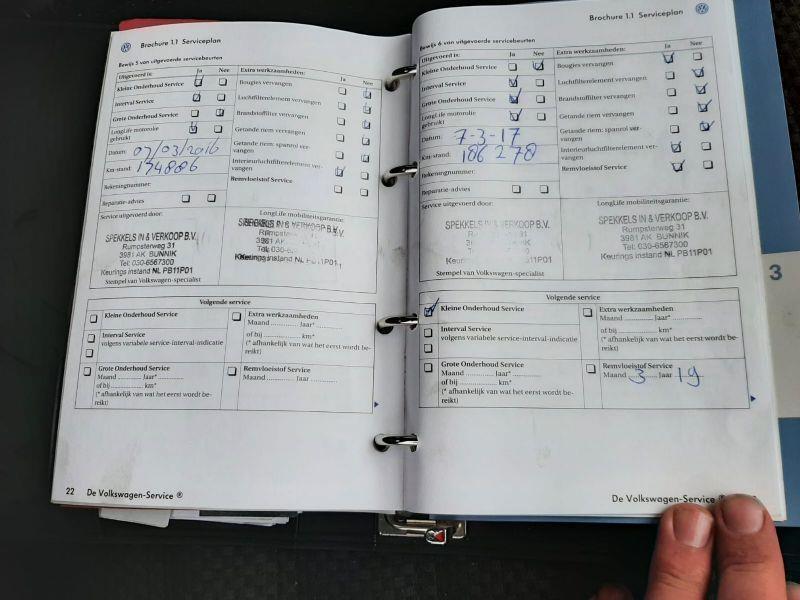 Brochure 1.1 Serviceplan
Bewijs 5 van uitgevoerde servicebeurten
Uitgevoerd is: Ja Nee
Kleine Onderhoud Service
Interval Service
Grote Onderhoud Service
LongLife motorolie
gebruikt
Datum: 07/03/2016
Km-stand: 174886
Rekeningnummer:
Reparatie-advies
Extra werkzaamheden: Ja Nee
Bougies vervangen
Luchtfilterelement vervangen
Brandstoffilter vervangen
Getande riem vervangen
Getande riem: spanrol ver-
vangen
Interieurluchtfilterelement ver-
vangen
Remvloeistof Service
Service uitgevoerd door:
SPEKKELS IN & VERKOOP B.V.
Rumpsterweg 31
3981 AK BUNNIK
Tel: 030-6567300
Keurings instand NL PB11P01
Stempel van Volkswagen-specialist
LongLife mobiliteitsgarantie:
SPEKKELS IN & VERKOOP B.V.
Rumpsterweg 31
3981 AK
Tel: 030-65
Keurings instand NL PB11P01
Volgende service
Kleine Onderhoud Service
Interval Service
volgens variabele service-interval-indicatie
Grote Onderhoud Service
Maand .............. Jaar* .............
of bij .............. km*
(* afhankelijk van wat het eerst wordt be-
reikt)
Extra werkzaamheden
Maand .............. Jaar* .............
of bij .............. km*
(* afhankelijk van wat het eerst wordt be-
reikt)
Remvloeistof Service
Maand .............. Jaar .............
22 De Volkswagen-Service ®
Brochure 1.1 Serviceplan
Bewijs 6 van uitgevoerde servicebeurten
Uitgevoerd is: Ja Nee
Kleine Onderhoud Service
Interval Service
Grote Onderhoud Service
LongLife motorolie
gebruikt
Datum: 7-3-17
Km-stand: 186 278
Rekeningnummer:
Reparatie-advies
Extra werkzaamheden: Ja Nee
Bougies vervangen
Luchtfilterelement vervangen
Brandstoffilter vervangen
Getande riem vervangen
Getande riem: spanrol ver-
vangen
Interieurluchtfilterelement ver-
vangen
Remvloeistof Service
Service uitgevoerd door:
SPEKKELS IN & VERKOOP B.V.
Rumpsterweg 31
3981 AK BUNNIK
Tel: 030-6567300
Keurings instand NL PB11P01
Stempel van Volkswagen-specialist
LongLife mobiliteitsgarantie:
SPEKKELS IN & VERKOOP B.V.
Rumpsterweg 31
3981 AK BUNNIK
Tel: 030-6567300
Keurings instand NL PB11P01
Volgende service
Kleine Onderhoud Service
Interval Service
volgens variabele service-interval-indicatie
Grote Onderhoud Service
Maand .............. Jaar* .............
of bij .............. km*
(* afhankelijk van wat het eerst wordt be-
reikt)
Extra werkzaamheden
Maand .............. Jaar* .............
of bij .............. km*
(* afhankelijk van wat het eerst wordt be-
reikt)
Remvloeistof Service
Maand 3 Jaar 19
De Volkswagen-Service ®
3